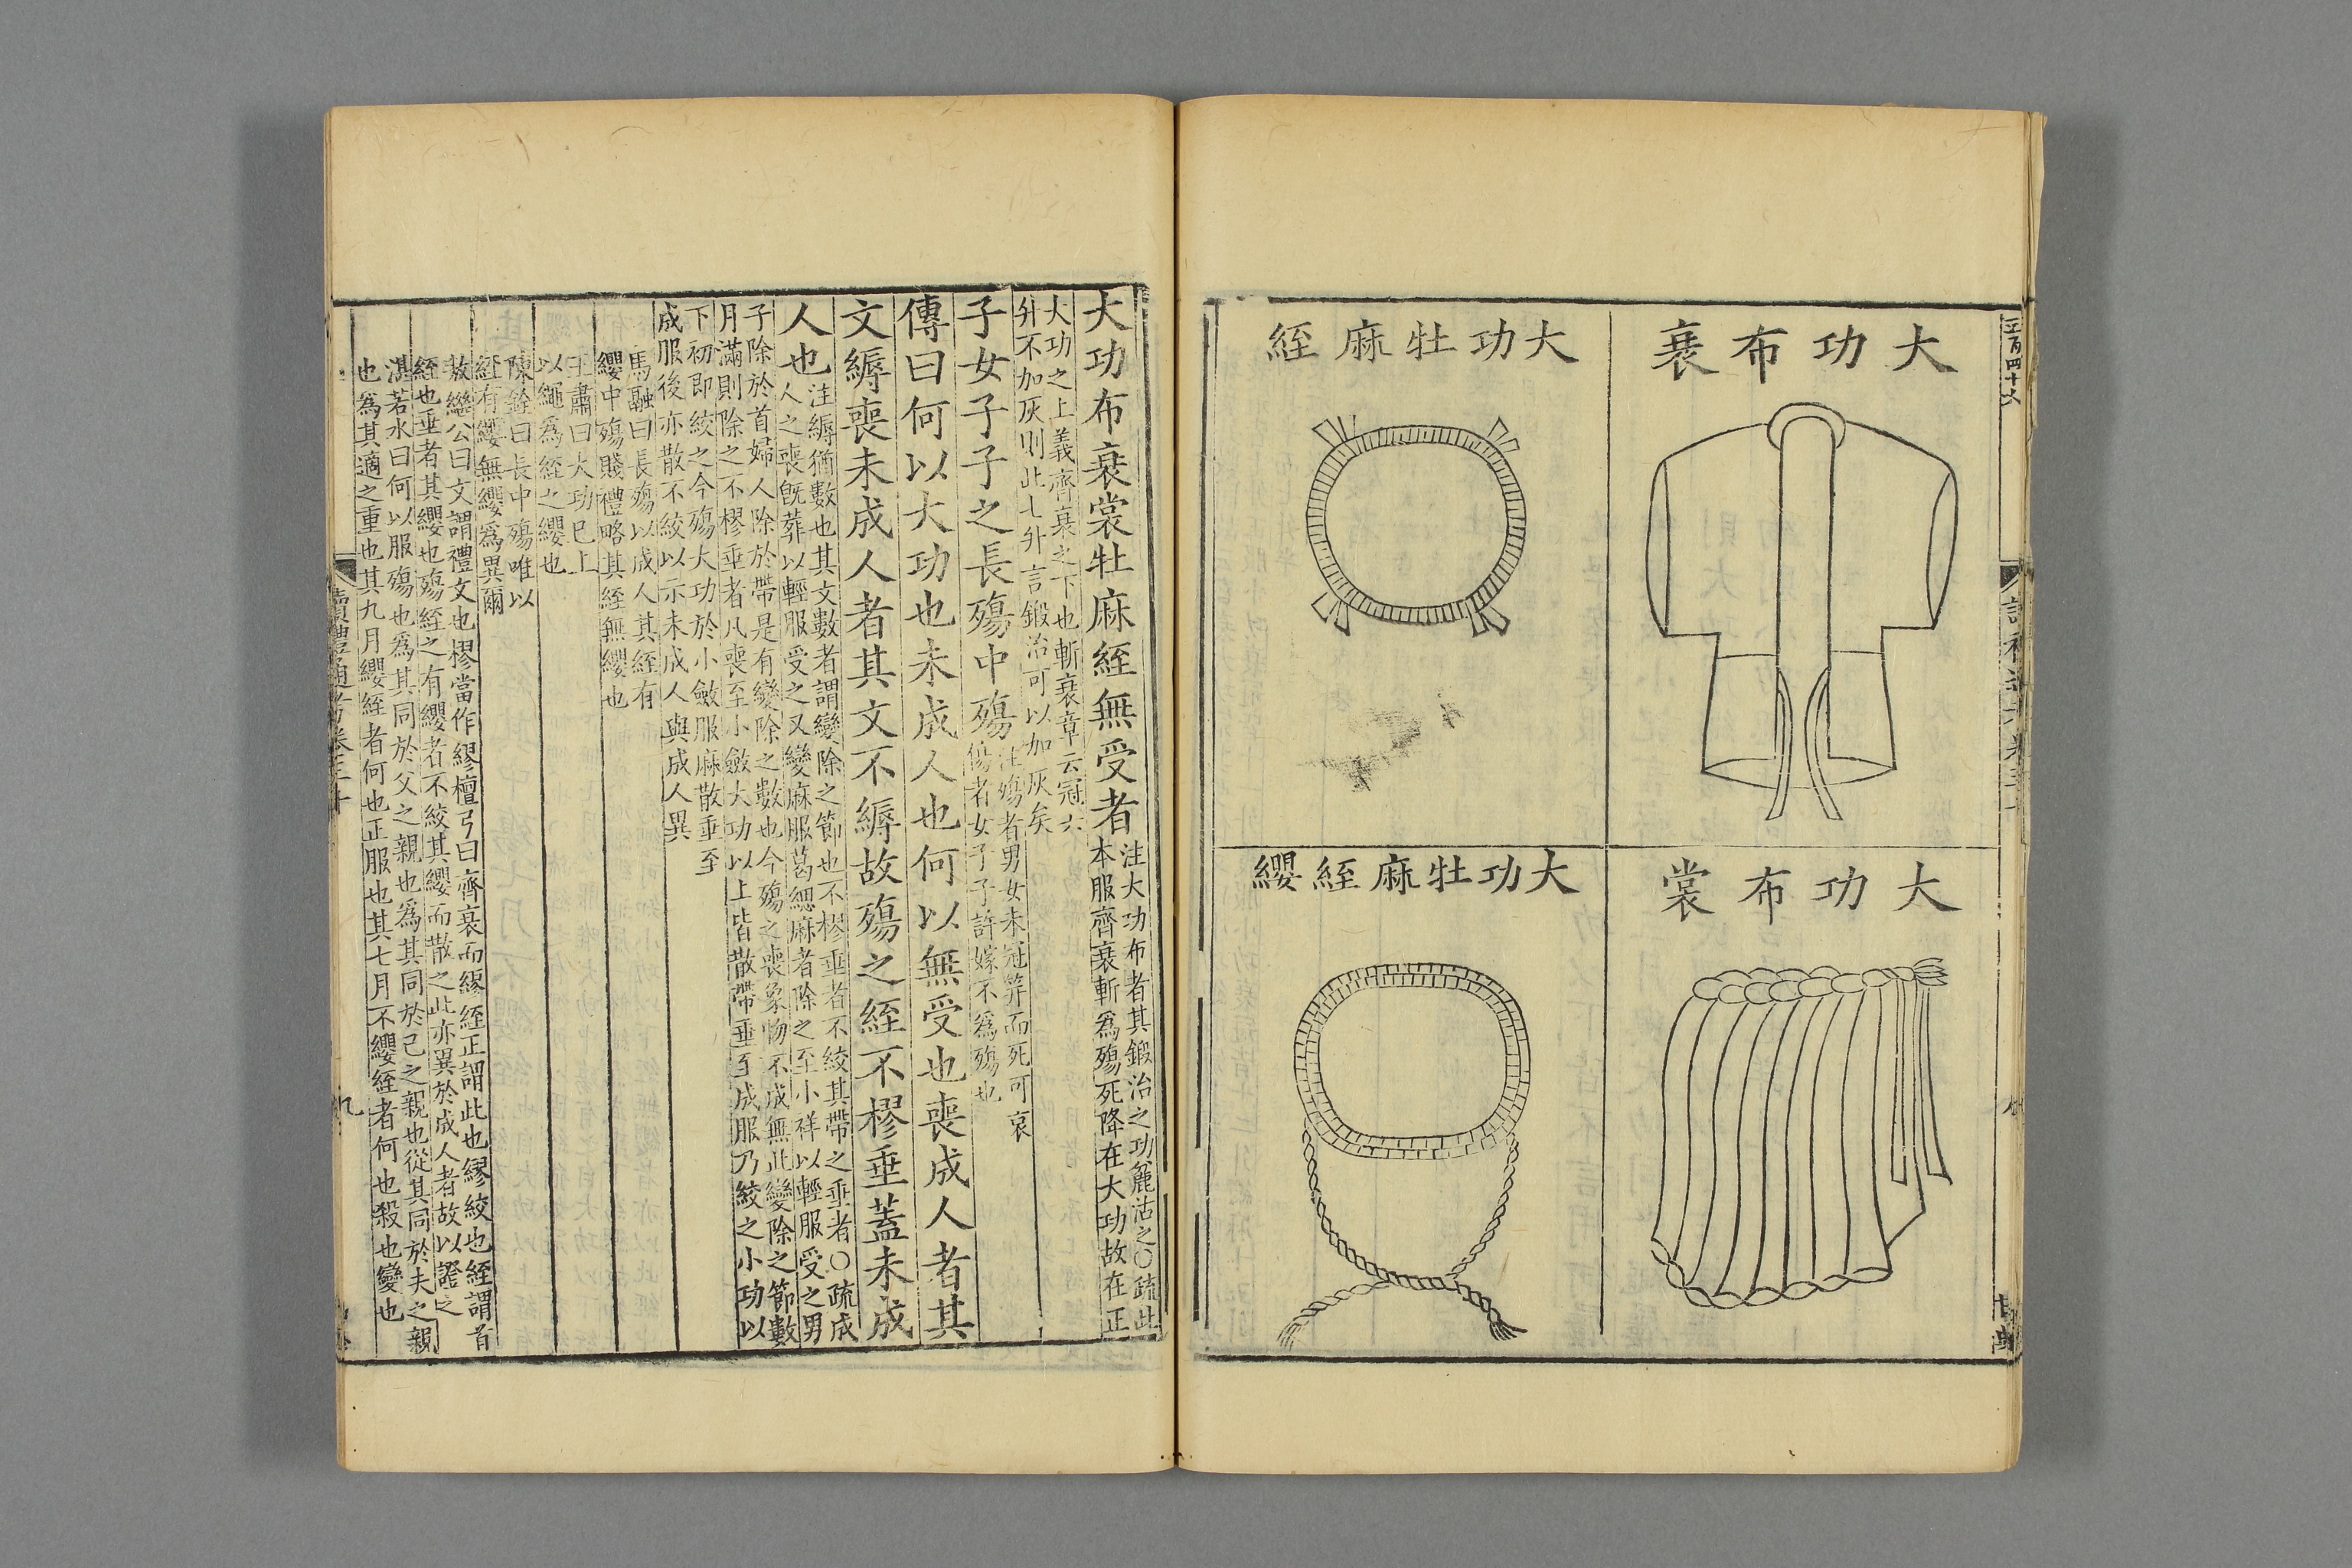 大功布衰
大功布裳
大功牡麻絰
大功牡麻絰纓
大功布衰裳牡麻絰無受者
注大功布者其鍛治之功麤沽之○疏此
本服齊衰斬爲殤死降在大功故在正
大功之上義齊衰之下也斬衰章云冠六
升不加灰則此七升言鍛治可以加灰矣
子女子子之長殤中殤
注殤者男女未冠笄而死可哀
傷者女子子許嫁不爲殤也
傳曰何以大功也未成人也何以無受也喪成人者其
文縟喪未成人者其文不縟故殤之絰不樛垂蓋未成
人也
注縟猶數也其文數者謂變除之節也不樛垂者不絞其帶之垂者○疏成
人之喪旣葬以輕服受之又變麻服葛緦麻者除之至小祥以輕服受之男
子除於首婦人除於帶是有變除之數也今殤之喪象物不成無此變除之節數
月滿則除之不樛垂者凡喪至小斂大功以上皆散帶垂至成服乃絞之小功以
下初卽絞之今殤大功於小斂服麻散垂至
成服後亦散不絞以示未成人與成人異
馬融曰長殤以成人其絰有
纓中殤賤禮略其絰無纓也
王肅曰大功已上
以繩爲絰之纓也
陳銓曰長中殤唯以
絰有纓無纓爲異爾
敖繼公曰文謂禮文也樛當作繆檀弓曰齊衰而繆絰正謂此也繆絞也絰謂首
絰也垂者其纓也殤絰之有纓者不絞其纓而散之此亦異於成人者故以證之
湛若水曰何以服殤也爲其同於父之親也爲其同於己之親也從其同於夫之親
也爲其適之重也其九月纓絰者何也正服也其七月不纓絰者何也殺也變也
讀禮通考卷三十
九